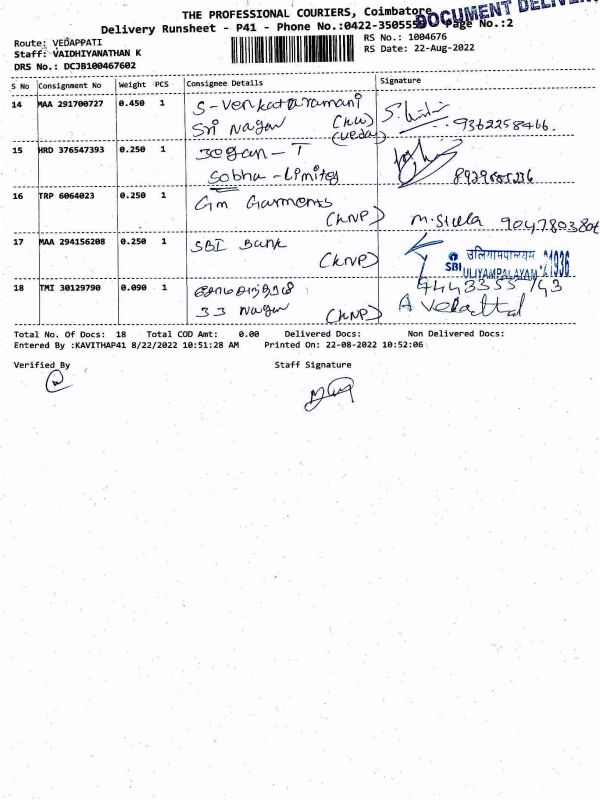 THE PROFESSIONAL COURIERS, Coimbatore
DOCUMENT
Delivery Runsheet - P41 - Phone No.:0422-35055 Page No.:2
Route: VEDAPPATI
Staff: VAIDHIYANATHAN K
DRS No.: DCJB100467602
RS No.: 1004676
RS Date: 22-Aug-2022
S No Consignment No Weight PCS Consignee Details Signature
14 MAA 291700727 0.450 1 S-Venkataramani
Sri Nagar
(Veda) 9362258466.
15 HRD 376547393 0.250 1
Sobha - Limited
16 TRP 6064023 0.250 1 Gm Garments
(KNP) M. Stella 9047803806
17 MAA 294156208 0.250 1 SBI Bank
(KNP)
SBI उलियामपालयम
ULIYAMPALAYAM
18 TMI 30129790 0.090 1
33 Nagar
(KNP)
Total No. Of Docs: 18 Total COD Amt: 0.00 Delivered Docs: Non Delivered Docs:
Entered By :KAVITHAP41 8/22/2022 10:51:28 AM Printed On: 22-08-2022 10:52:06
Verified By Staff Signature